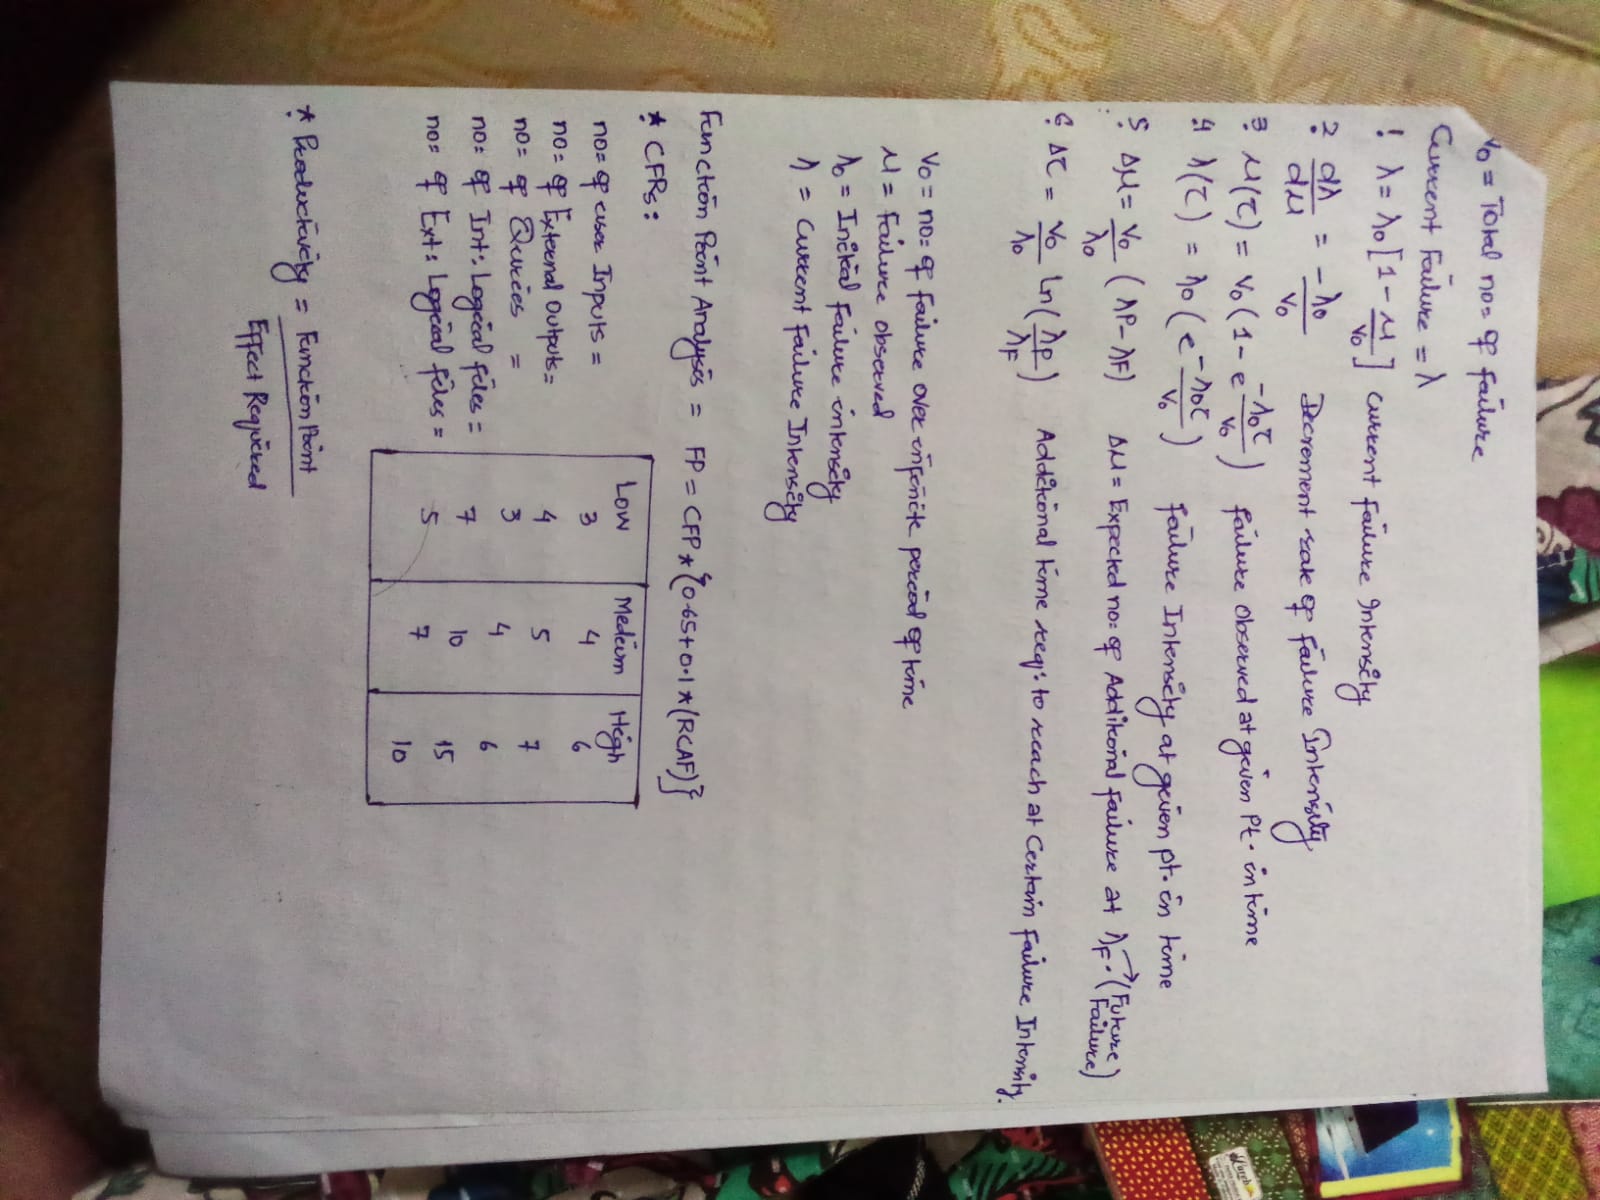 V₀ = Total no= of failure
Current Failure = λ
1 λ = λ₀ [1 - μ/V₀] Current failure Intensity
2 dλ/dμ = -λ₀/V₀ Decrement rate of failure Intensity
3 μ(τ) = V₀ (1 - e^(-λ₀τ/V₀)) failure observed at given Pt. in time
4 λ(τ) = λ₀ (e^(-λ₀τ/V₀)) failure Intensity at given pt. in time
5 Δμ = V₀/λ₀ (λP - λF) Δμ = Expected no: of Additional failure at λF. → (Future Failure)
6 Δτ = V₀/λ₀ Ln(λp/λF) Additional time req: to reach at Certain failure Intensity.
V₀ = no= of failure over infinite period of time
μ = Failure observed
λ₀ = Initial failure intensity
λ = Current failure Intensity
Function Point Analyses = FP = CFP * {0.65 + 0.1 * (RCAF)}
* CFRs:
Low Medium High
no= of user Inputs = 3 4 6
no= of External Outputs = 4 5 7
no= of Quries = 3 4 6
no= of Int: Logical files = 7 10 15
no= of Ext: Logical files = 5 7 10
* Productivity = Function Point / Effect Required